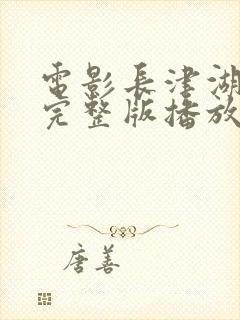 電影長津湖
完整版播放
唐善